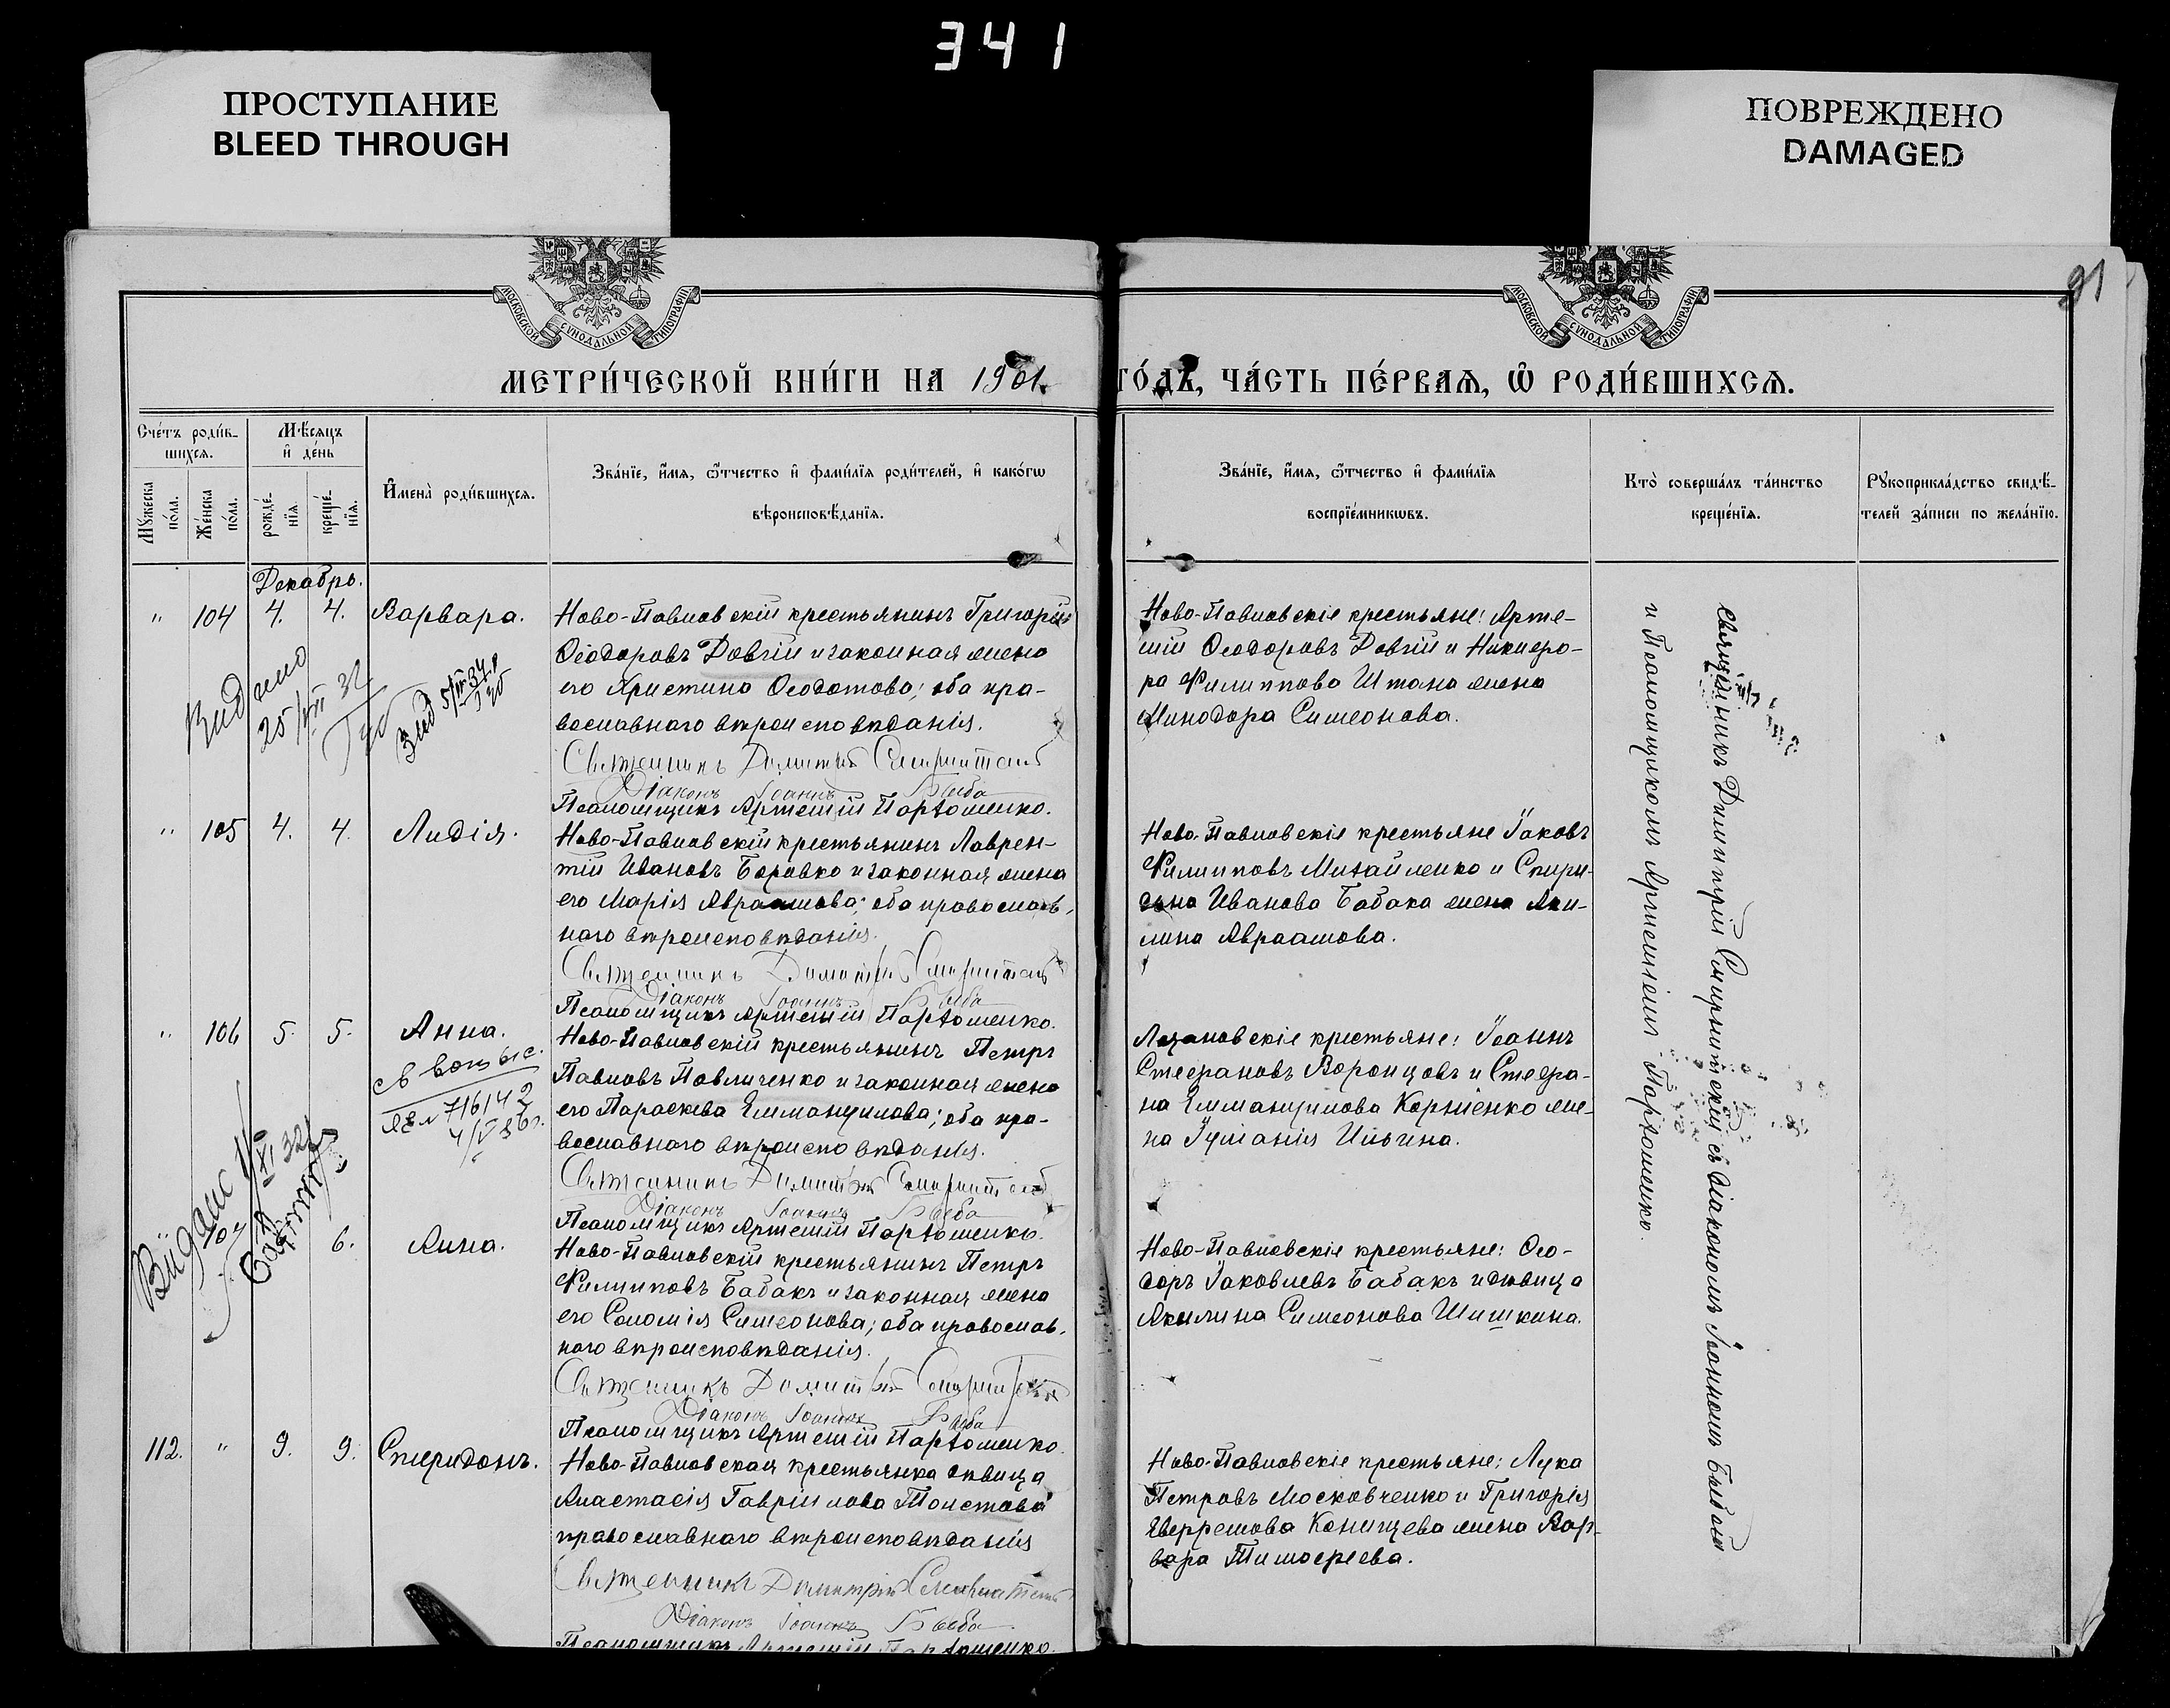 341
ПРОСТУПАНИЕ
BLEED THROUGH
ПОВРЕЖДЕНО
DAMAGED
91
МОСКОВСКОЙ СѴНОДАЛЬНОЙ ТИПОГРАФІИ
МОСКОВСКОЙ СѴНОДАЛЬНОЙ ТИПОГРАФІИ
МЕТРИ́ЧЕСКОЙ КНИ́ГИ НА 1901 ГО́ДЪ, ЧА́СТЬ ПЕ́РВАЯ, Ѿ РОДИ́ВШИХСЯ.
Сче́тъ роди́в-
шихся.
Мꙋжеска по́ла.
Же́нска по́ла.
Мѣ́сяцъ
и де́нь
рожде́-
нїя.
креще́-
нїя.
Имена̀ роди́вшихся.
Зва́нїе, и́мя, ѻ́тчество и фами́лїя роди́телей, и како́гѡ
вѣроисповѣ́данїя.
Зва́нїе, и́мя, ѻ́тчество и фами́лїя
воспрїе́мникѡвъ.
Кто̀ соверша́лъ та́инство
креще́нїя.
Рꙋкоприкла́дство свидѣ́-
телей за́писи по жела́нїю.
Декабрь.
" 104 4. 4. Варвара.
Ново-Павловскій крестьянинъ Григорій
Ѳеодоровъ Довгій и законная жена
его Христина Ѳеодотова; оба пра-
вославнаго вѣроисповѣданія.
Священникъ Димитрій
Діаконъ Іоаннъ
Псаломщикъ Артемій Пархоменко.
Ново-Павловскіе крестьяне: Арте-
мій Ѳеодоровъ Довгій и Никифо-
ра Филиппова Штана жена
Минодора Симеонова.
Видано
25
" 105 4. 4. Лидія.
Ново-Павловскій крестьянинъ Лаврен-
тій Ивановъ Боровко и законная жена
его Марія Авраамова; оба православ-
наго вѣроисповѣданія.
Священникъ Димитрій
Діаконъ Іоаннъ
Псаломщикъ Артемій Пархоменко.
Ново-Павловскіе крестьяне Іаковъ
Филипповъ Михайленко и Спири-
дона Иванова Бабака жена Аки-
лина Авраамова.
" 106 5. 5. Анна.
716142
Ново-Павловскій крестьянинъ Петръ
Павловъ Павличенко и законная жена
его Параскева Еммануилова; оба пра-
вославнаго вѣроисповѣданія.
Священникъ Димитрій
Діаконъ Іоаннъ
Псаломщикъ Артемій Пархоменко.
крестьяне: Іоаннъ
Стефановъ Воронцовъ и Стефа-
на Еммануилова Корніенко же-
на Іуліанія Ильина.
107 6. Анна.
Ново-Павловскій крестьянинъ Петръ
Филипповъ Бабакъ и законная жена
его Соломія Симеонова; оба православ-
наго вѣроисповѣданія.
Священникъ Димитрій
Діаконъ Іоаннъ
Псаломщикъ Артемій Пархоменко.
Ново-Павловскіе крестьяне: Ѳео-
доръ Іаковлевъ Бабакъ и дѣвица
Акилина Симеонова Шишкина.
112. " 9. 9. Спиридонъ.
Ново-Павловская крестьянка дѣвица
Анастасія Гавріилова Толстова
православнаго вѣроисповѣданія
Священникъ Димитрій
Діаконъ Іоаннъ
Псаломщикъ Артемій Пархоменко.
Ново-Павловскіе крестьяне: Лука
Петровъ Московченко и Григорія
Конищева жена Вар-
вара Тимофеева.
Священникъ Димитрій съ діакономъ Іоанномъ
и Псаломщикомъ Артеміемъ Пархоменко.